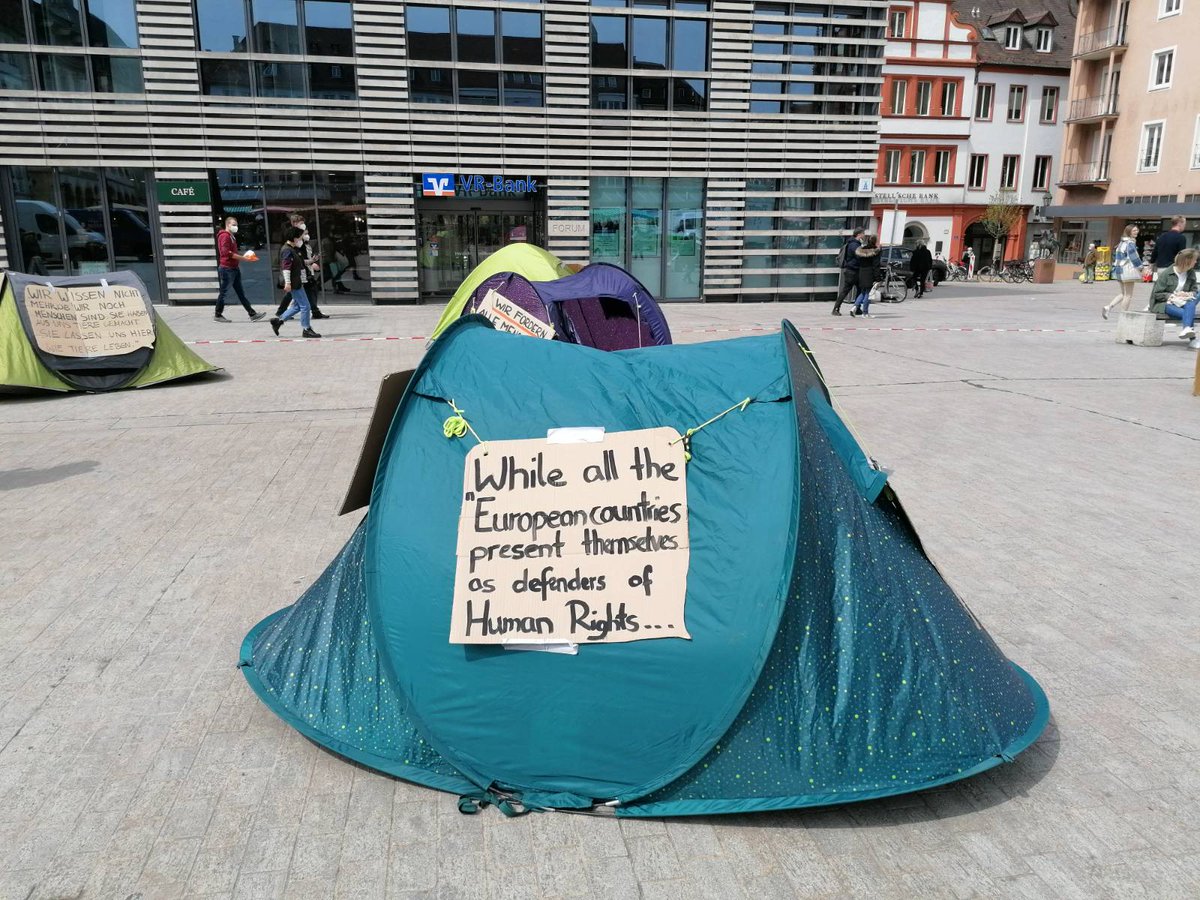 CAFÉ
VR-Bank
FORUM
STELL'SCHE BANK
WIR WISSEN NICHT
MEHR, WIE WIR NOCH
MENSCHEN SIND. SIE HABEN
AUS UNS TIERE GEMACHT
SIE LASSEN UNS
WIE TIERE LEBEN."
WIR FORDERN
ALLE MENS
While all the
"European countries
present themselves
as defenders of
Human Rights...